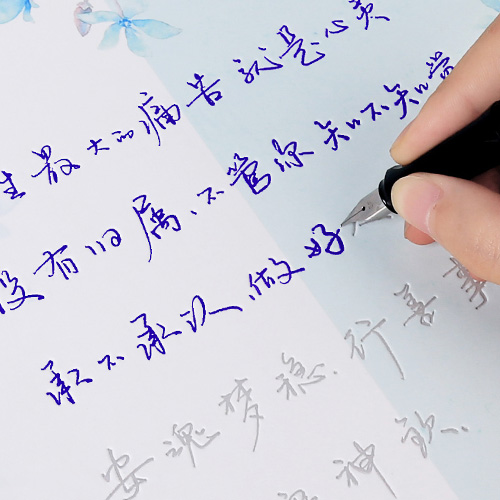 生最大的痛苦就是心灵
没有归属、不管你知不知觉
承不承认、做好
安魂梦稳.行善
神钦.